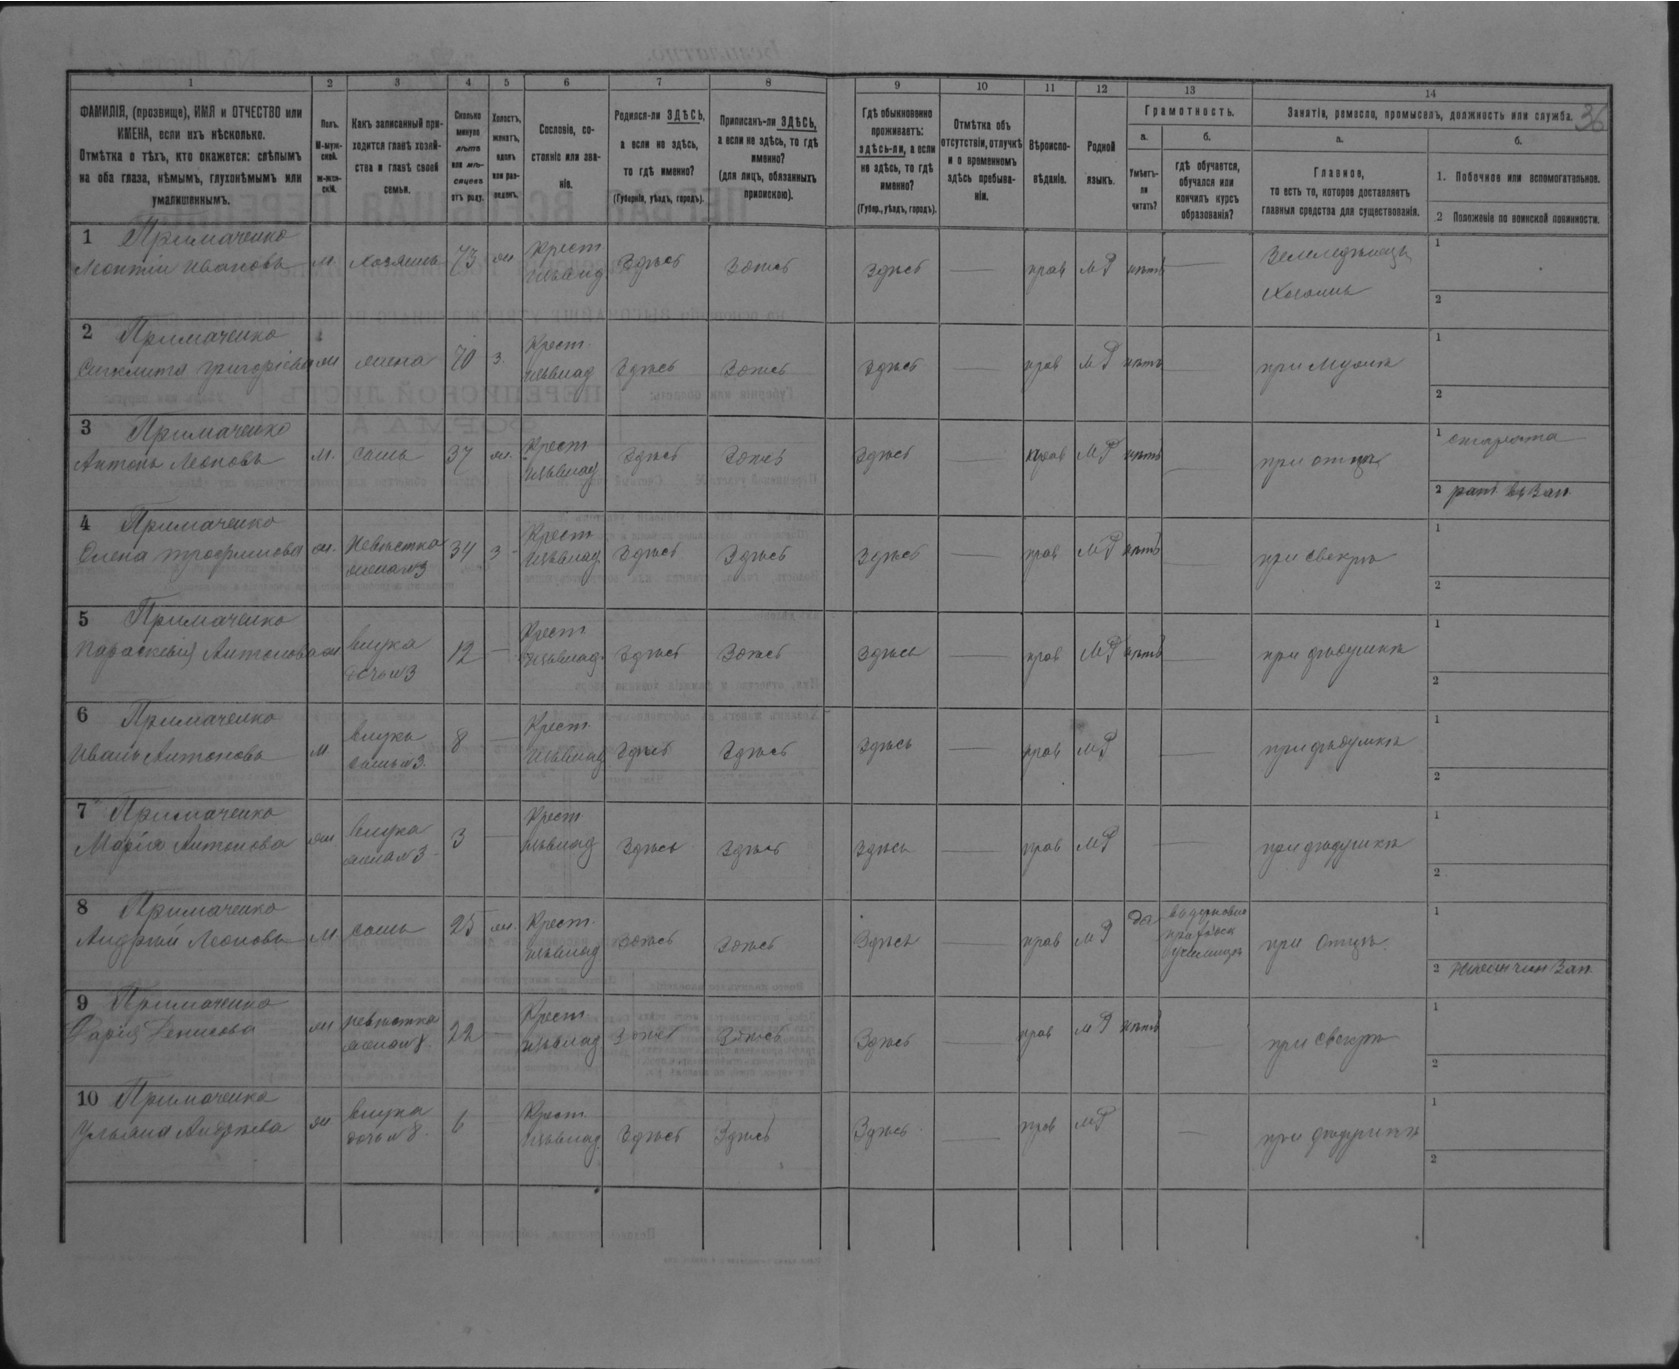 36
1 2 3 4 5 6 7 8 9 10 11 12 13 14
ФАМИЛІЯ, (прозвище), ИМЯ и ОТЧЕСТВО или
ИМЕНА, если ихъ нѣсколько.
Отмѣтка о тѣхъ, кто окажется: слѣпымъ
на оба глаза, нѣмымъ, глухонѣмымъ или
умалишеннымъ.
Полъ.
М-муж-
ской.
Ж-жен-
скій.
Какъ записанный при-
ходится главѣ хозяй-
ства и главѣ своей
семьи.
Сколько
минуло
лѣтъ
или мѣ-
сяцевъ
отъ роду.
Холостъ,
женатъ,
вдовъ
или раз-
веденъ.
Сословіе, со-
стояніе или зва-
ніе.
Родился-ли ЗДѢСЬ,
а если не здѣсь,
то гдѣ именно?
(Губернія, уѣздъ, городъ).
Приписанъ-ли ЗДѢСЬ,
а если не здѣсь, то гдѣ
именно?
(для лицъ, обязанныхъ
припискою).
Гдѣ обыкновенно
проживаетъ:
здѣсь-ли, а если
не здѣсь, то гдѣ
именно?
(Губер., уѣздъ, городъ).
Отмѣтка объ
отсутствіи, отлучкѣ
и о временномъ
здѣсь пребыва-
ніи.
Вѣроиспо-
вѣданіе.
Родной
языкъ.
Грамотность.
а. б.
Умѣетъ-
ли
читать?
гдѣ обучается,
обучался или
кончилъ курсъ
образованія?
Занятія, ремесло, промыселъ, должность или служба.
а. б.
Главное,
то есть то, которое доставляетъ
главныя средства для существованія.
1. Побочное или вспомогательное.
2 Положеніе по воинской повинности.
1 Примаченко Крест Земледѣлецъ 1
Леонтій Ивановъ м. хозяинъ 73 ж Изъвлад Здѣсь Здѣсь Здѣсь — прав МР нѣтъ — Хозяинъ 2
2 Примаченко Крест. 1
Григоріева ж жена 70 з. Изъвлад Здѣсь Здѣсь Здѣсь — прав МР нѣтъ при Мужѣ 2
3 Примаченко Крест 1
Антонъ Леоновъ м. сынъ 37 ж. Изъвлад Здѣсь Здѣсь Здѣсь — прав МР нѣтъ — при отцѣ 2 рат. въ Зап
4 Примаченко Крест 1
Олена Трофимова ж. Невѣстка 34 з Изъвлад Здѣсь Здѣсь Здѣсь — прав МР нѣтъ — при свекрѣ 2
жена №3
5 Примаченко Крест 1
Параскевія Антонова ж внука 12 — Изъвлад Здѣсь Здѣсь Здѣсь — прав МР нѣтъ — при дѣдушкѣ 2
дочь №3
6 Примаченко Крест 1
Иванъ Антоновъ м внукъ 8 — Изъвлад Здѣсь Здѣсь Здѣсь — прав МР — при дѣдушкѣ 2
сынъ №3.
7 Примаченко Крест 1
Марія Антонова ж. внука 3 — Изъвлад Здѣсь Здѣсь Здѣсь — прав МР — при дѣдушкѣ 2
№3
8 Примаченко 1
Андрѣй Леоновъ м сынъ 25 ж. Крест. Изъвлад Здѣсь Здѣсь Здѣсь — прав МР да училищѣ при Отцѣ. 2 Зап.
9 Примаченко Крест 1
Денисова ж невѣстка 22 — Изъвлад Здѣсь Здѣсь Здѣсь — прав МР нѣтъ — при свекрѣ 2
жена №8.
10 Примаченко Крест 1
Ульяна Андрѣева ж внука 6 — Изъвлад Здѣсь Здѣсь Здѣсь — прав МР — при дѣдушкѣ 2
дочь №8.